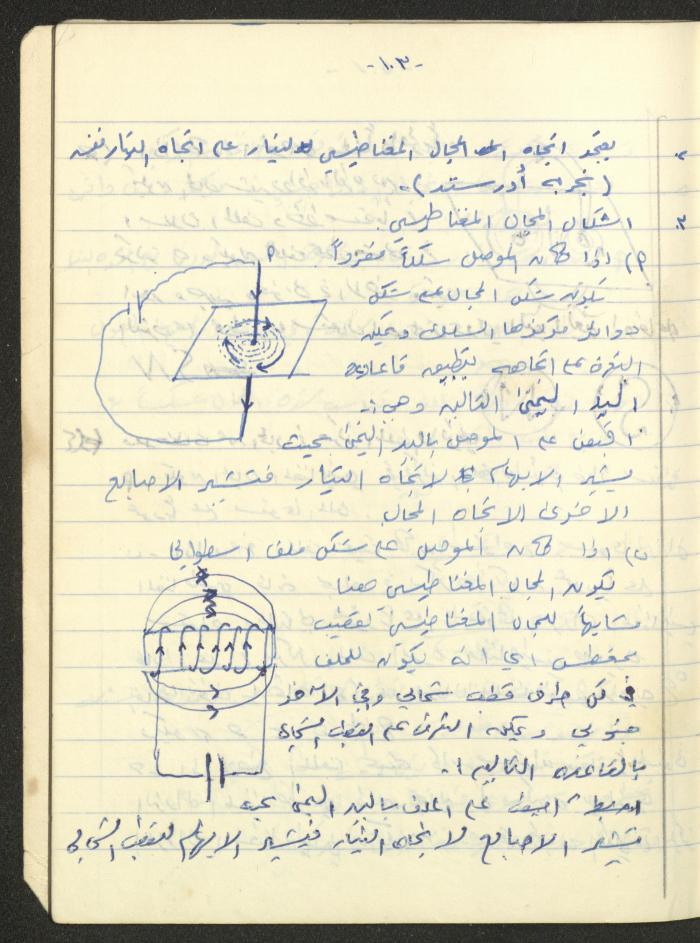 -١٠٣-
٢ يعتمد اتجاه المجال المغناطيسي للتيار على اتجاه التيار نفسه
(تجربة أورستد).
٣ اشكال المجال المغناطيسي.
٩) اذا كان الموصل سلكاً مفرداً.
يكون شكل المجال على شكل
دوائر مركزها السلك ويمكن
التعرف على اتجاهه بتطبيق قاعدة
اليد اليمنى التالية وهي:
اقبض على الموصل باليد اليمنى بحيث
يشير الابهام لاتجاه التيار فتشير الاصابع
الاخرى لاتجاه المجال
ب) اذا كان الموصل على شكل ملف اسطواني
فيكون المجال المغناطيسي هنا
مشابهاً للمجال المغناطيسي لقضيب
ممغطس اي انه يكون للملف
في كل طرف قطب شمالي وفي الآخر
جنوبي ويمكن التعرف على القطب الشمالي
بالقاعدة التالية:
اقبض على الملف باليد اليمنى بحيث
تشير الاصابع لاتجاه التيار فيشير الابهام للقطب الشمالي